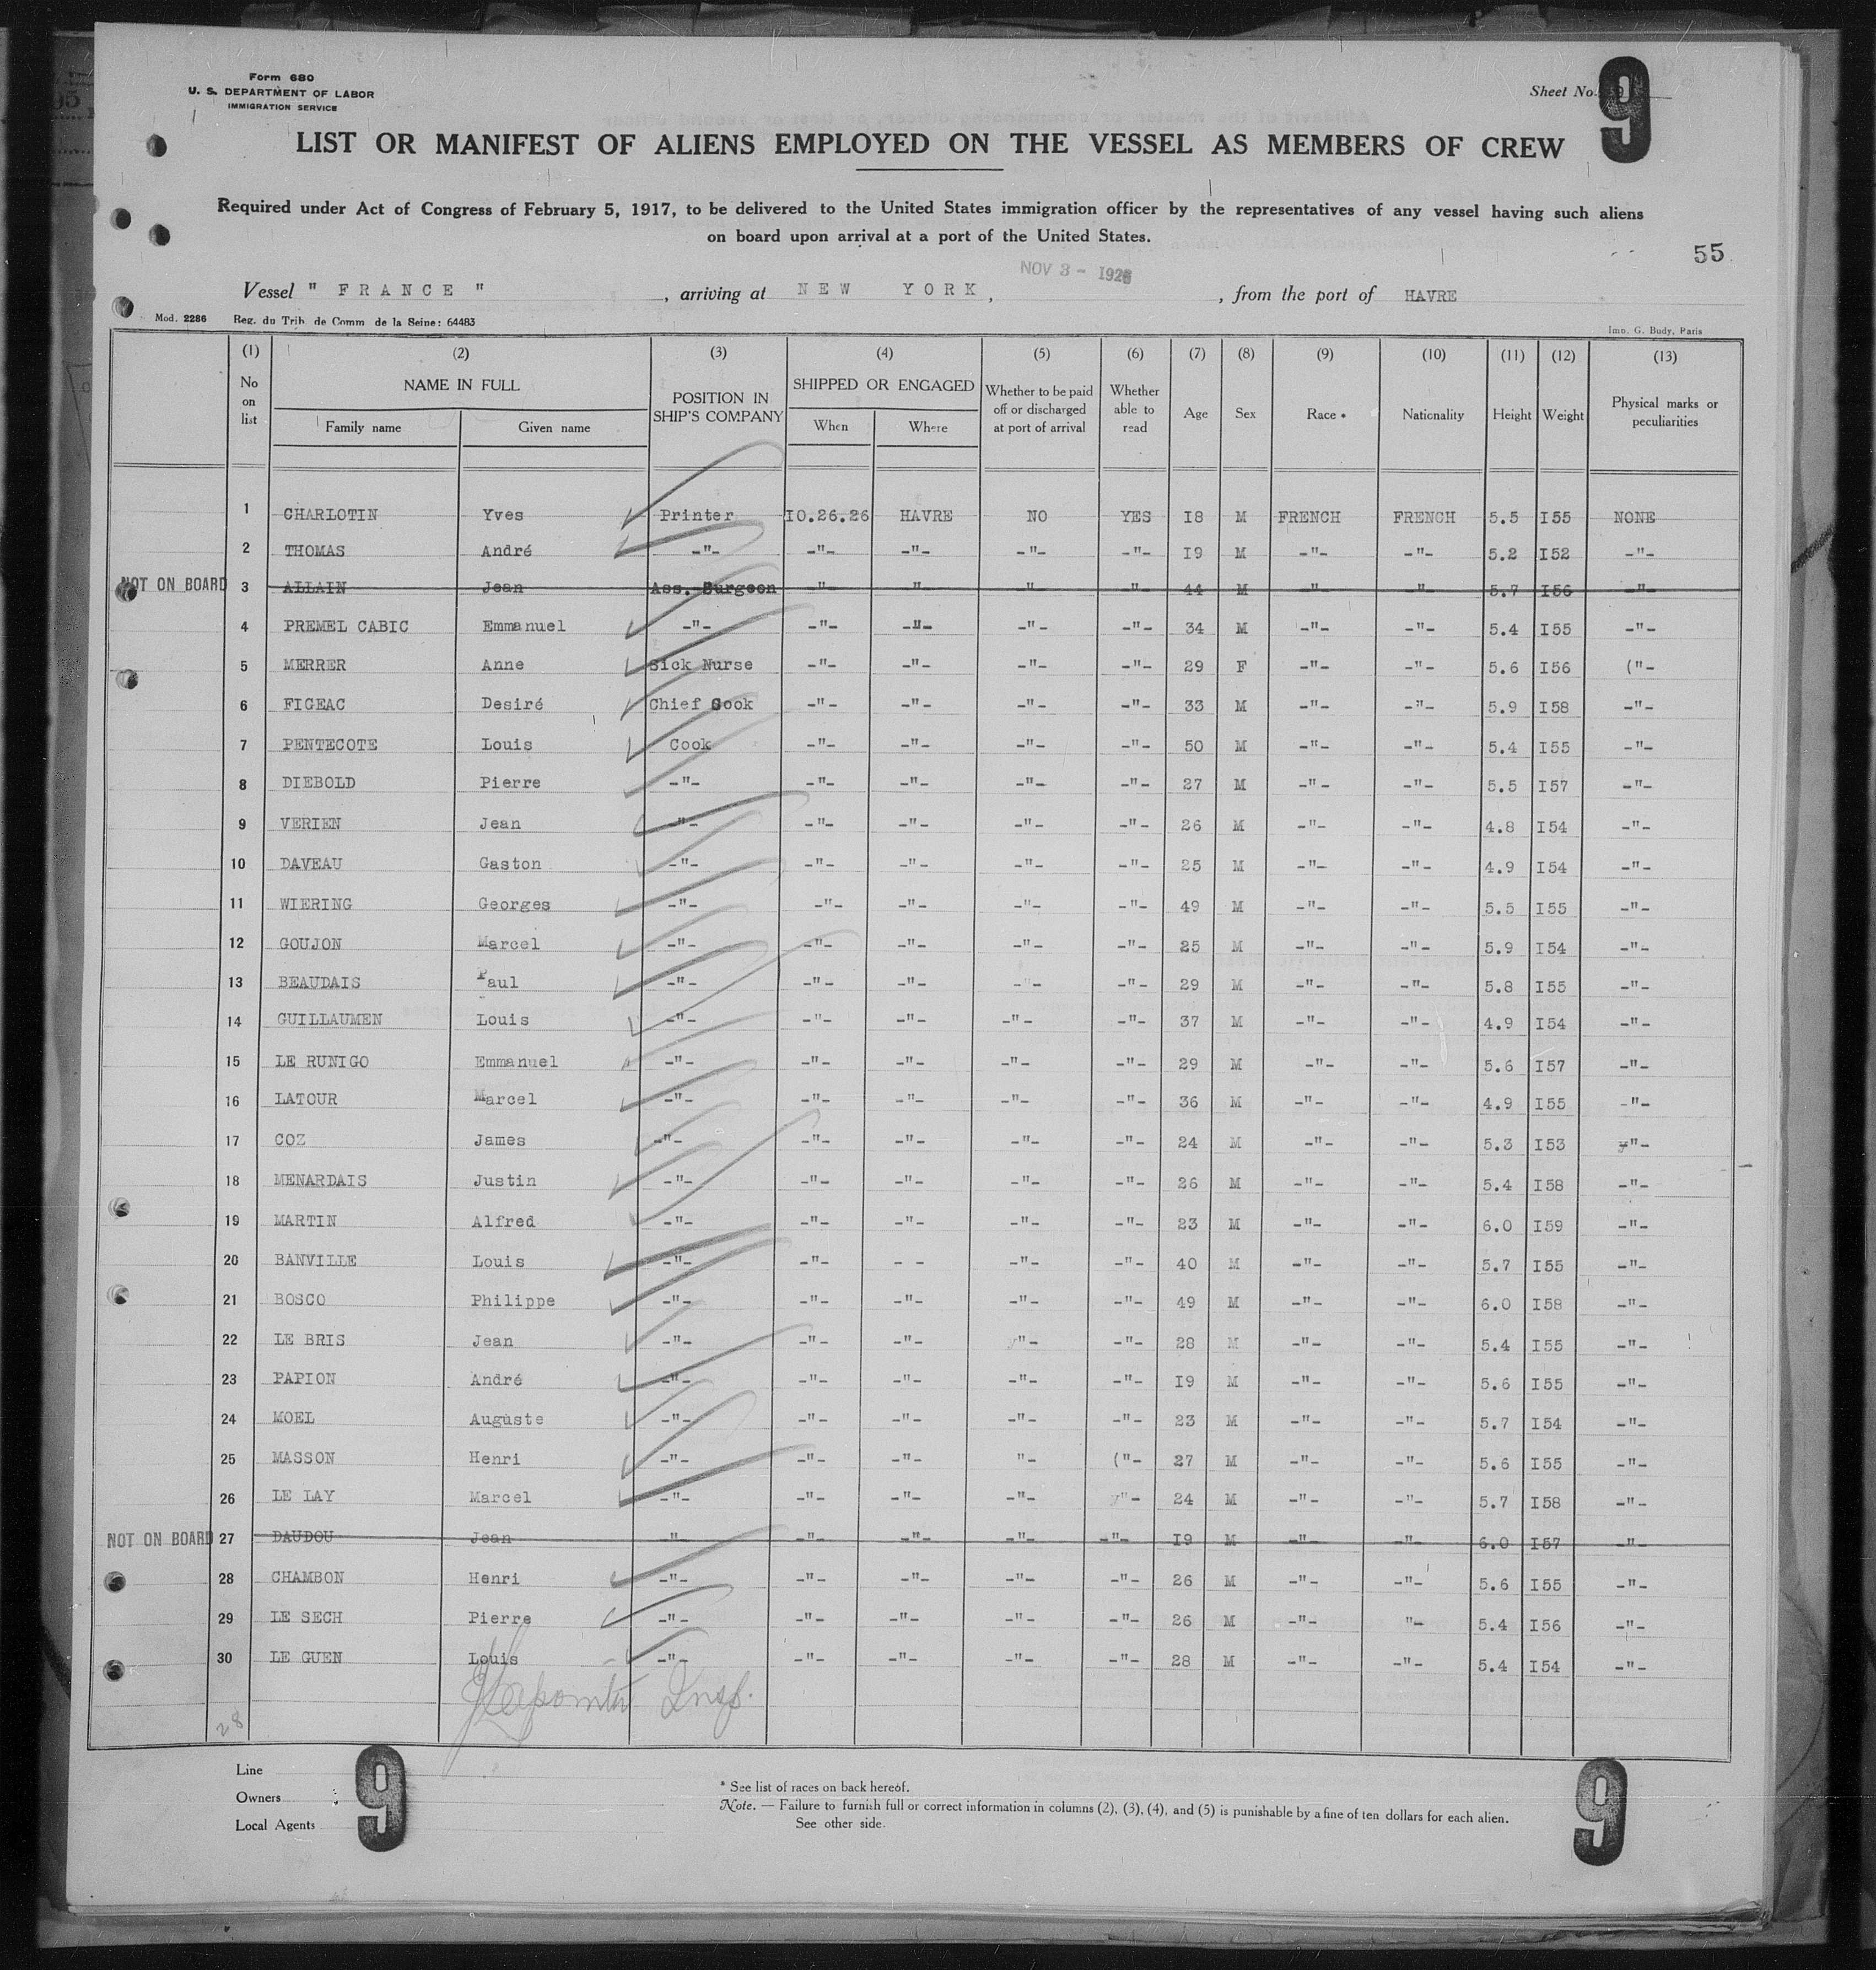 Form 680
U. S. DEPARTMENT OF LABOR
IMMIGRATION SERVICE
Sheet No. 9
LIST OR MANIFEST OF ALIENS EMPLOYED ON THE VESSEL AS MEMBERS OF CREW
Required under Act of Congress of February 5, 1917, to be delivered to the United States immigration officer by the representatives of any vessel having such aliens
on board upon arrival at a port of the United States.
55
NOV 3 - 1926
Vessel " FRANCE " , arriving at NEW YORK , , from the port of HAVRE
Mod. 2286 Reg. du Trib. de Comm. de la Seine: 64483 Imp. G. Budy, Paris
(1) (2) (3) (4) (5) (6) (7) (8) (9) (10) (11) (12) (13)
No on list NAME IN FULL Family name Given name POSITION IN SHIP'S COMPANY SHIPPED OR ENGAGED When Where Whether to be paid off or discharged at port of arrival Whether able to read Age Sex Race * Nationality Height Weight Physical marks or peculiarities
1 CHARLOTIN Yves Printer I0.26.26 HAVRE NO YES I8 M FRENCH FRENCH 5.5 I55 NONE
2 THOMAS André -"- -"- -"- -"- -"- I9 M -"- -"- 5.2 I52 -"-
NOT ON BOARD 3 ALLAIN Jean Ass. Surgeon -"- " -"- " 44 M " " 5.7 I56 "
4 PREMEL CABIC Emmanuel -"- -"- -"- -"- -"- 34 M -"- -"- 5.4 I55 -"-
5 MERRER Anne Sick Nurse -"- -"- -"- -"- 29 F -"- -"- 5.6 I56 ("-
6 FIGEAC Desiré Chief Cook -"- -"- -"- -"- 33 M -"- -"- 5.9 I58 -"-
7 PENTECOTE Louis Cook -"- -"- -"- -"- 50 M -"- -"- 5.4 I55 -"-
8 DIEBOLD Pierre -"- -"- -"- -"- -"- 27 M -"- -"- 5.5 I57 -"-
9 VERIEN Jean -"- -"- -"- -"- -"- 26 M -"- -"- 4.8 I54 -"-
10 DAVEAU Gaston -"- -"- -"- -"- -"- 25 M -"- -"- 4.9 I54 -"-
11 WIERING Georges -"- -"- -"- -"- -"- 49 M -"- -"- 5.5 I55 -"-
12 GOUJON Marcel -"- -"- -"- -"- -"- 25 M -"- -"- 5.9 I54 -"-
13 BEAUDAIS Paul -"- -"- -"- -"- -"- 29 M -"- -"- 5.8 I55 -"-
14 GUILLAUMEN Louis -"- -"- -"- -"- -"- 37 M -"- -"- 4.9 I54 -"-
15 LE RUNIGO Emmanuel -"- -"- -"- -"- -"- 29 M -"- -"- 5.6 I57 -"-
16 LATOUR Marcel -"- -"- -"- -"- -"- 36 M -"- -"- 4.9 I55 -"-
17 COZ James -"- -"- -"- -"- -"- 24 M -"- -"- 5.3 I53 -"-
18 MENARDAIS Justin -"- -"- -"- -"- -"- 26 M -"- -"- 5.4 I58 -"-
19 MARTIN Alfred -"- -"- -"- -"- -"- 23 M -"- -"- 6.0 I59 -"-
20 BANVILLE Louis -"- -"- - - -"- -"- 40 M -"- -"- 5.7 I55 -"-
21 BOSCO Philippe -"- -"- -"- -"- -"- 49 M -"- -"- 6.0 I58 -"-
22 LE BRIS Jean -"- -"- -"- "- -"- 28 M -"- -"- 5.4 I55 -"-
23 PAPION André -"- -"- -"- -"- -"- I9 M -"- -"- 5.6 I55 -"-
24 MOEL Auguste -"- -"- -"- -"- -"- 23 M -"- -"- 5.7 I54 -"-
25 MASSON Henri -"- -"- -"- "- ("- 27 M -"- -"- 5.6 I55 -"-
26 LE LAY Marcel -"- -"- -"- -"- "- 24 M -"- -"- 5.7 I58 -"-
NOT ON BOARD 27 DAUDOU Jean " -"- -"- -"- -"- I9 M -"- -"- 6.0 I57 -"-
28 CHAMBON Henri -"- -"- -"- -"- -"- 26 M -"- -"- 5.6 I55 -"-
29 LE SECH Pierre -"- -"- -"- -"- -"- 26 M -"- "- 5.4 I56 -"-
30 LE GUEN Louis -"- -"- -"- -"- -"- 28 M -"- -"- 5.4 I54 -"-
Insp.
28
Line
Owners
Local Agents
9
* See list of races on back hereof.
Note. — Failure to furnish full or correct information in columns (2), (3), (4), and (5) is punishable by a fine of ten dollars for each alien.
See other side.
9